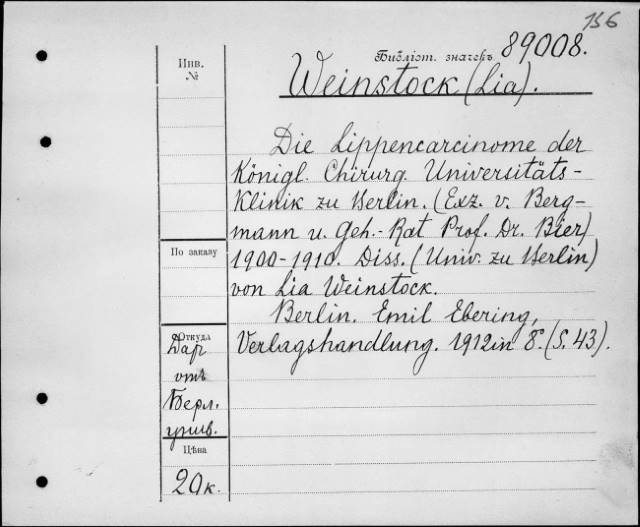 156
Библіот. значекъ 89008.
Инв.
№
Weinstock (Lia).
Die Lippencarcinome der
Königl. Chirurg. Universitäts-
Klinik zu Berlin. (Exz. v. Berg-
mann u. Geh.-Rat Prof. Dr. Bier)
1900-1910. Diss. (Univ. zu Berlin)
von Lia Weinstock.
Berlin. Emil Ebering,
Verlagshandlung. 1912 in 8°. (S. 43).
По заказу
Откуда
Дар
отъ
Берл.
унив.
Цѣна
20 к.